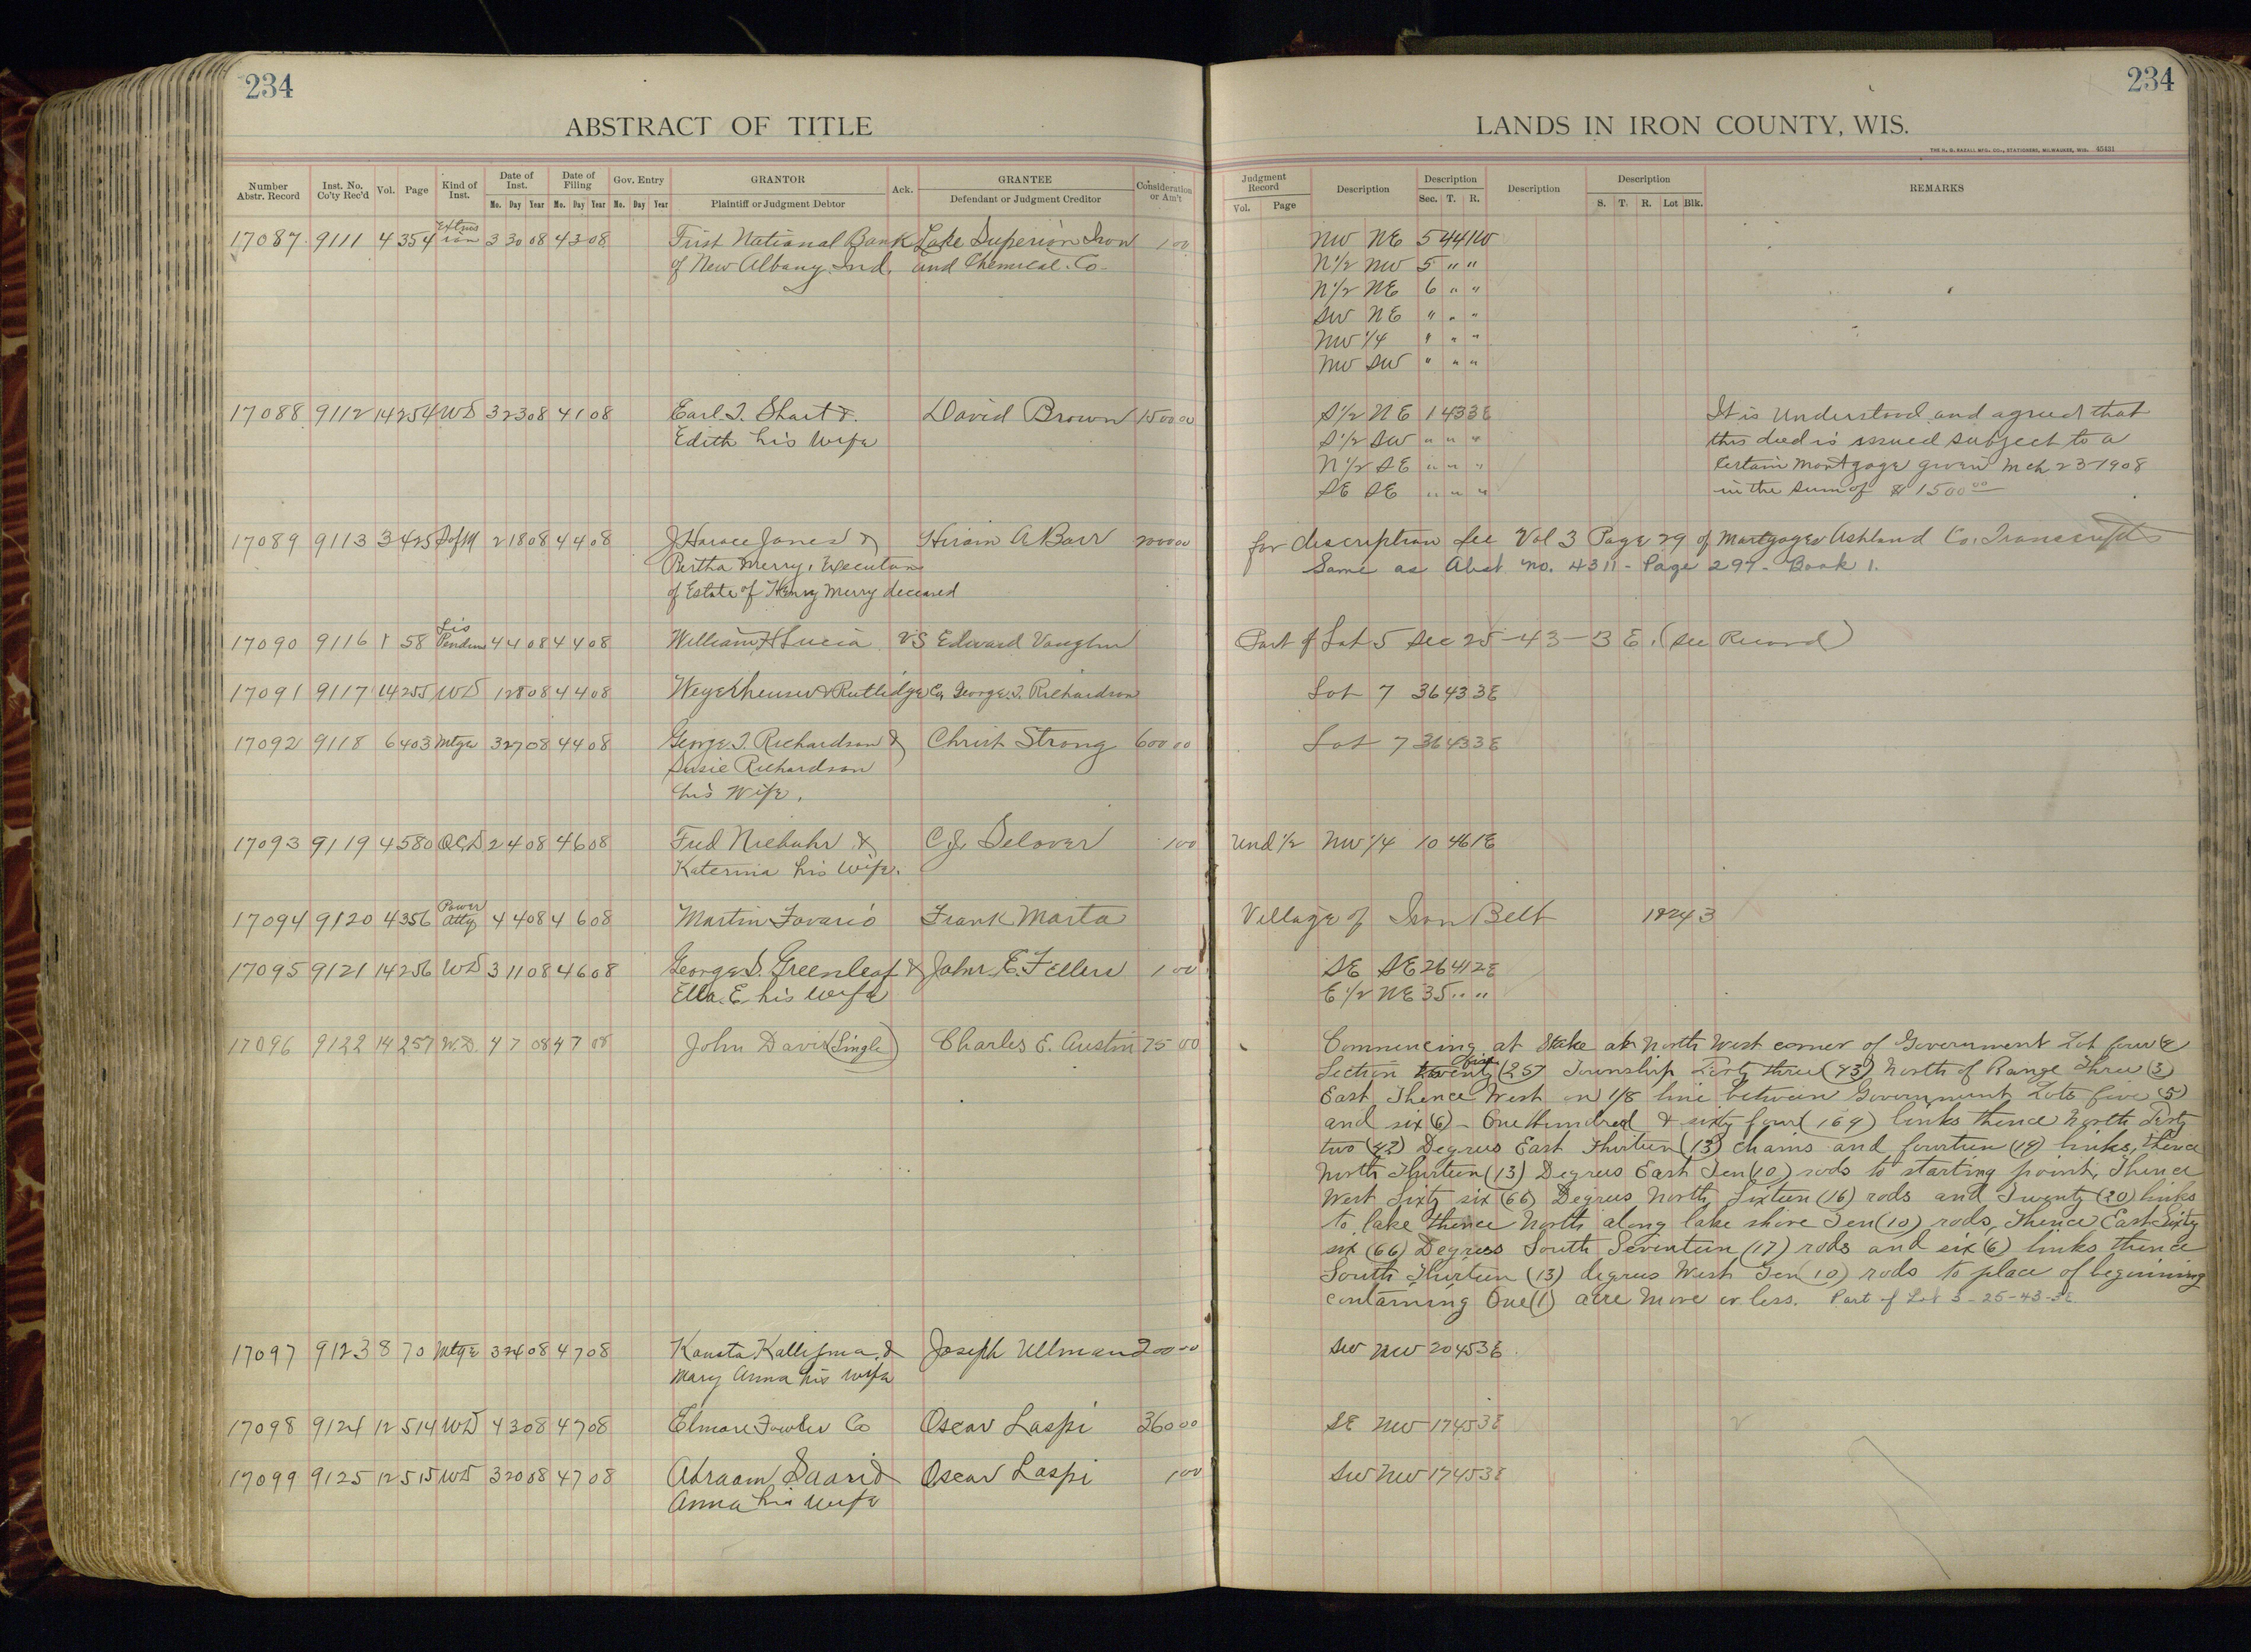 234
ABSTRACT OF TITLE
Number Abstr. Record | Inst. No. Co'ty Rec'd | Vol. | Page | Kind of Inst. | Date of Inst. Mo. Day Year | Date of Filing Mo. Day Year | Gov. Entry Mo. Day Year | GRANTOR Plaintiff or Judgment Debtor | Ack. | GRANTEE Defendant or Judgment Creditor | Consideration or Am't
17087 9111 4 354 3 30 08 4 3 08 First National Bank Lake Superior Iron 1 00
of New Albany Ind. and Chemical Co
17088 9112 14 254 WD 3 23 08 4 1 08 Earl T. Short & David Brown 1500 00
Edith his wife
17089 9113 3 425 S of M 2 18 08 4 4 08 J Horace Jones & Hiram A Barr 2000 00
Bertha Merry, Executors
of Estate of Henry Merry deceased
17090 9116 1 58 Lis Pendens 4 4 08 4 4 08 William H Lucia VS Edward Vaughn
17091 9117 14 255 WD 1 28 08 4 4 08 Weyerheuser & Rutledge Co George T. Richardson
17092 9118 6 403 Mtge 3 27 08 4 4 08 George T. Richardson & Christ Strong 600 00
Susie Richardson
his Wife.
17093 9119 4 580 QCD 2 4 08 4 6 08 Fred Niebuhr & 1 00
Katerina his wife.
17094 9120 4 356 Power Atty 4 4 08 4 6 08 Martin Frank Marta
17095 9121 14 256 WD 3 11 08 4 6 08 George S. Greenleaf & John E. Fellers 1 00
Ella E. his wife
17096 9122 14 257 W.D. 4 7 08 4 7 08 John Davis (Single) Charles E. Austin 75 00
17097 9123 8 70 Mtge 3 24 08 4 7 08 Joseph Ullman 200 00
Mary Anna his wife
17098 9124 12 514 WD 4 3 08 4 7 08 Elmore Fowler Co Oscar Laspi 360 00
17099 9125 12 515 WD 3 20 08 4 7 08 Abraam Saari & Oscar Laspi 1 00
Anna his wife
234
LANDS IN IRON COUNTY, WIS.
THE H. G. RAZALL MFG. CO., STATIONERS, MILWAUKEE, WIS. 45431
Judgment Record Vol. Page | Description | Description Sec. T. R. | Description | Description S. T. R. Lot Blk. | REMARKS
NW NE 5 44 1W
N1/2 NW 5 " "
N1/2 NE 6 " "
SW NE " " "
NW 1/4 " " "
NW SW " " "
S1/2 NE 1 43 3E It is Understood and agreed that
S1/2 SW " " " this deed is issued subject to a
N1/2 SE " " " Certain Mortgage given Mch 23 1908
SE SE " " " in the sum of $1500 00
for description see Vol 3 Page 29 of Mortgages Ashland Co. Transcripts
Same as Abst no. 4311 - Page 297 - Book 1.
Part of Lot 5 Sec 25-43-3 E. (See Record)
Lot 7 36 43 3E
Lot 7 36 43 3E
Und 1/2 NW 1/4 10 46 1E
Village of Iron Belt
SE SE 26 41 2E
E 1/2 NE 35 " "
Commencing at Stake at North West corner of Government Lot four (4)
Section twenty five (25) Township Forty three (43) North of Range Three (3)
East Thence West on 1/8 line between Government Lots five (5)
and six (6) - One Hundred & sixty four (164) links thence North Forty
two (42) Degrees East Thirteen (13) chains and fourteen (14) links, thence
North Thirteen (13) Degrees East Ten (10) rods to starting point, Thence
West Sixty six (66) Degrees North Sixteen (16) rods and Twenty (20) links
to lake thence North along lake shore Ten (10) rods, Thence East Sixty
six (66) Degrees South Seventeen (17) rods and six (6) links thence
South Thirteen (13) degrees West Ten (10) rods to place of beginning
containing One (1) acre more or less. Part of Lot 5-25-43-3E
SW NW 20 45 3E
SE NW 17 45 3E
SW NW 17 45 3E